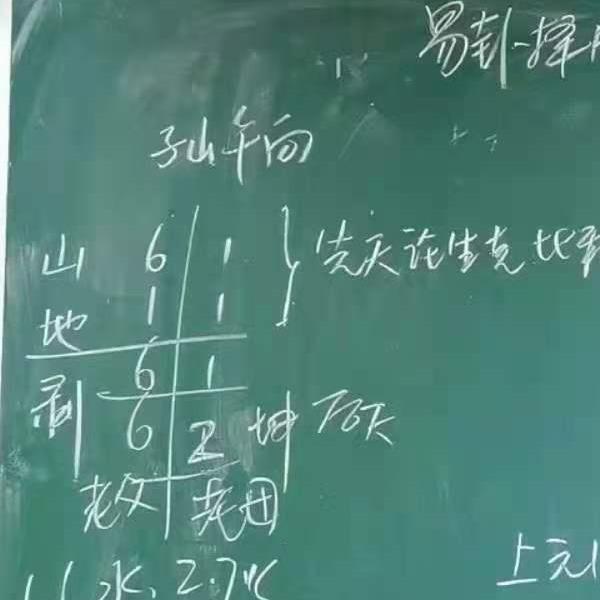 易卦-择
子山午向
山 6 1 } 先天论生克比和
地 1 1
剥 6 1
6 2 坤 后天
老父 老母
1.6水、2.7火
上元